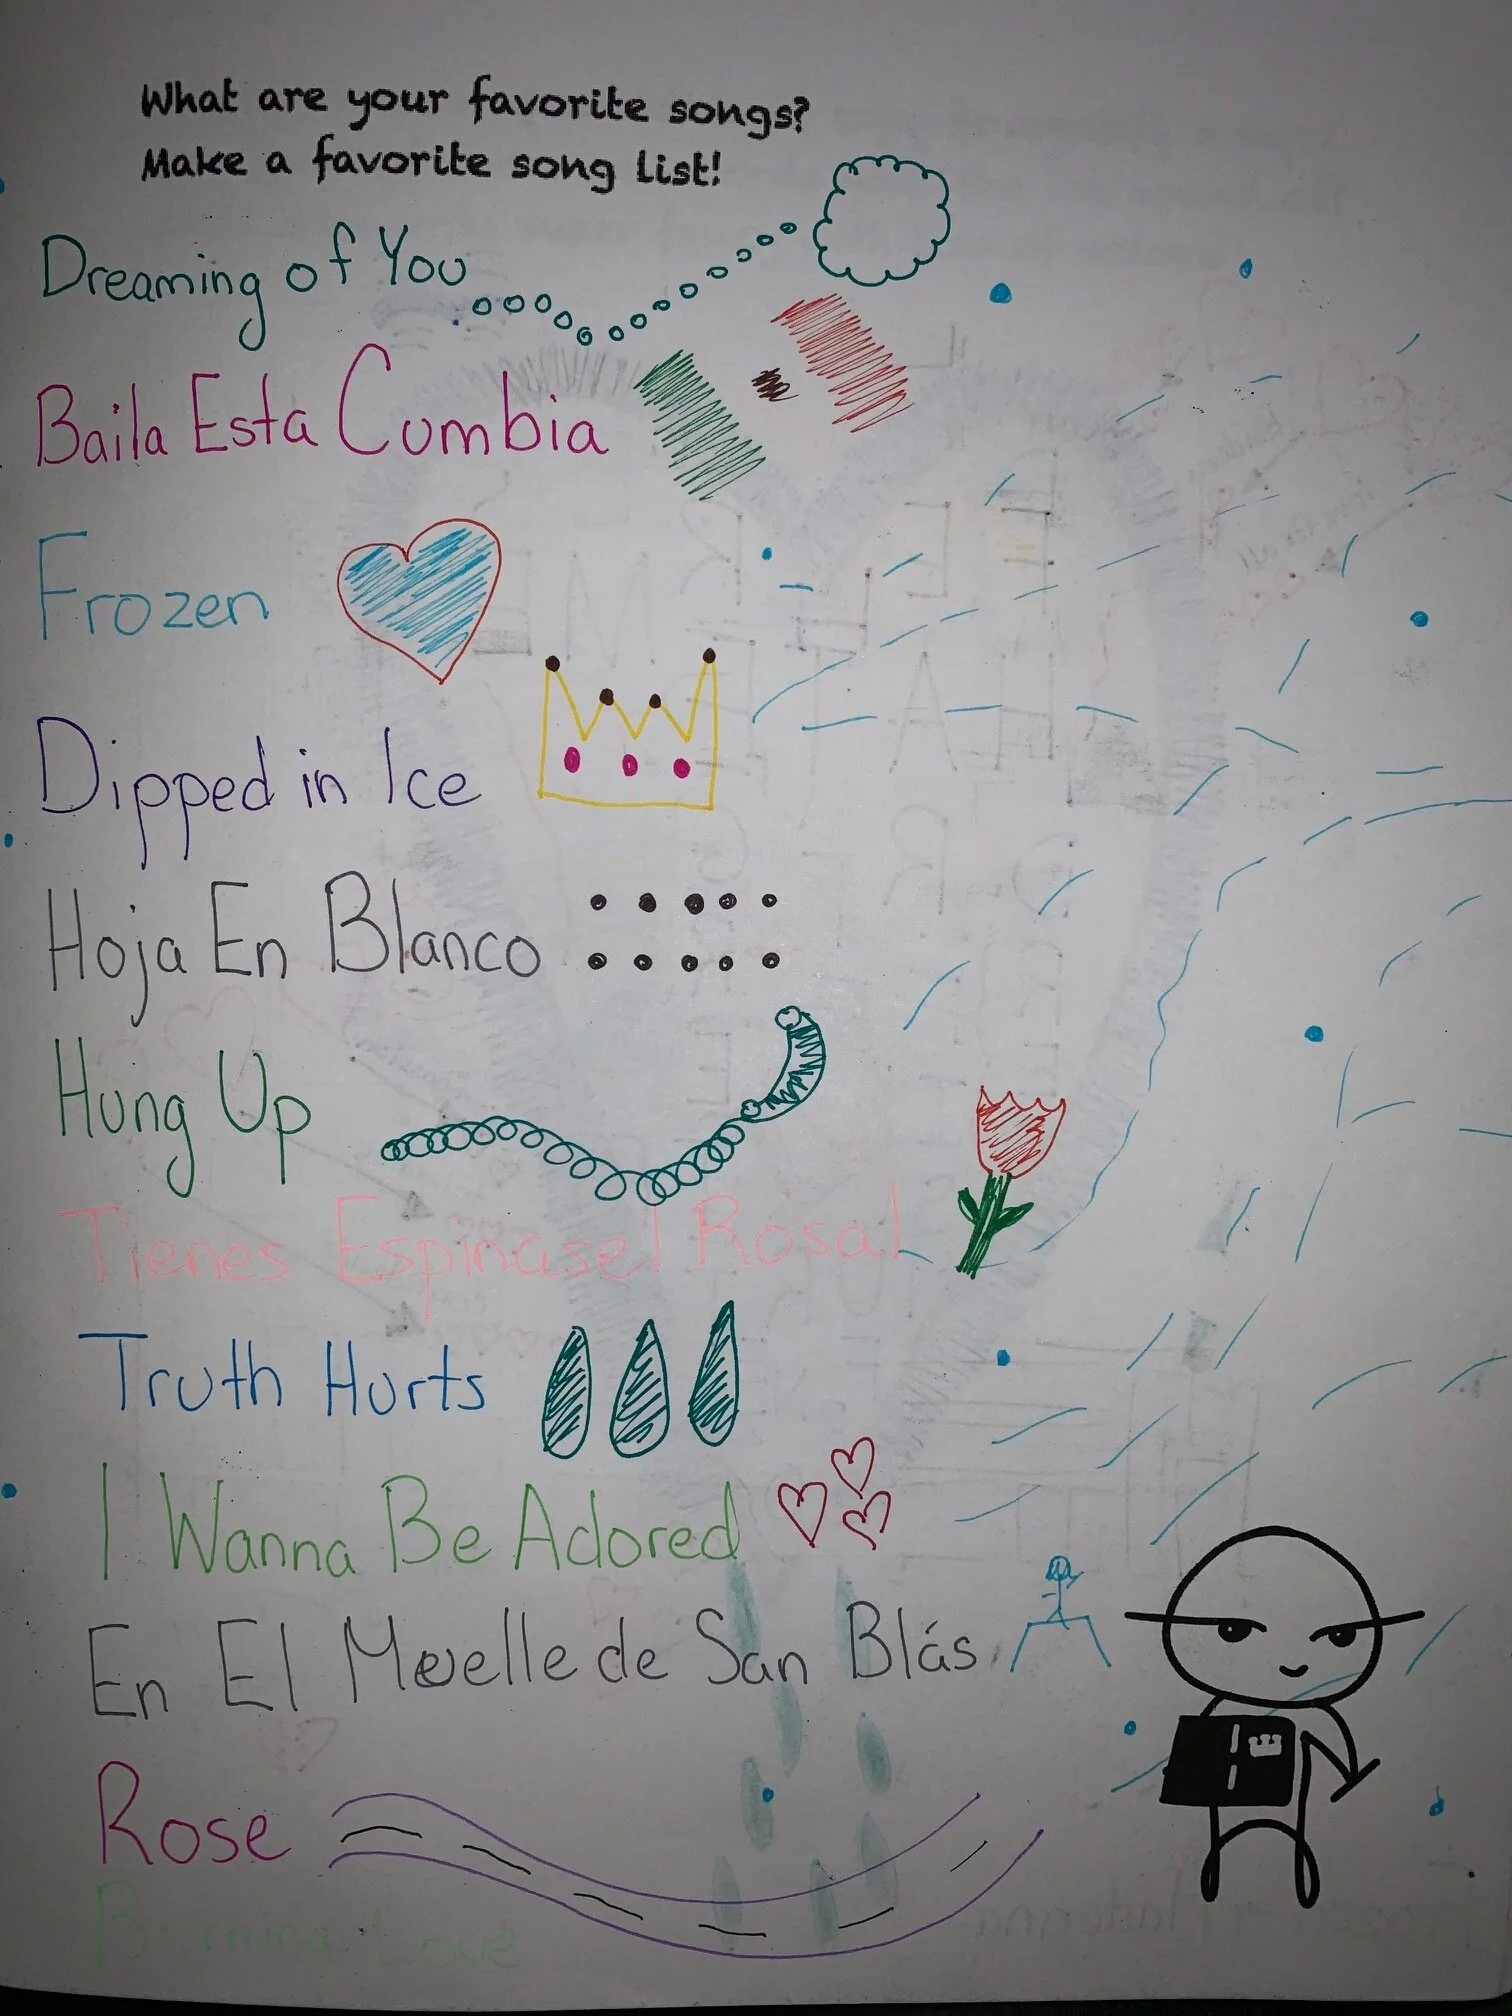 What are your favorite songs?
Make a favorite song list!
Dreaming of You
Baila Esta Cumbia
Frozen
Dipped in Ice
Hoja En Blanco
Hung Up
Tienes Espinasel Rosal
Truth Hurts
I Wanna Be Adored
En El Muelle de San Blás
Rose
Burning Love